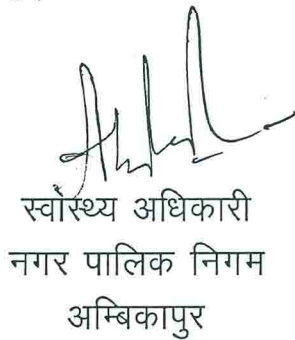 स्वास्थ्य अधिकारी
नगर पालिक निगम
अम्बिकापुर